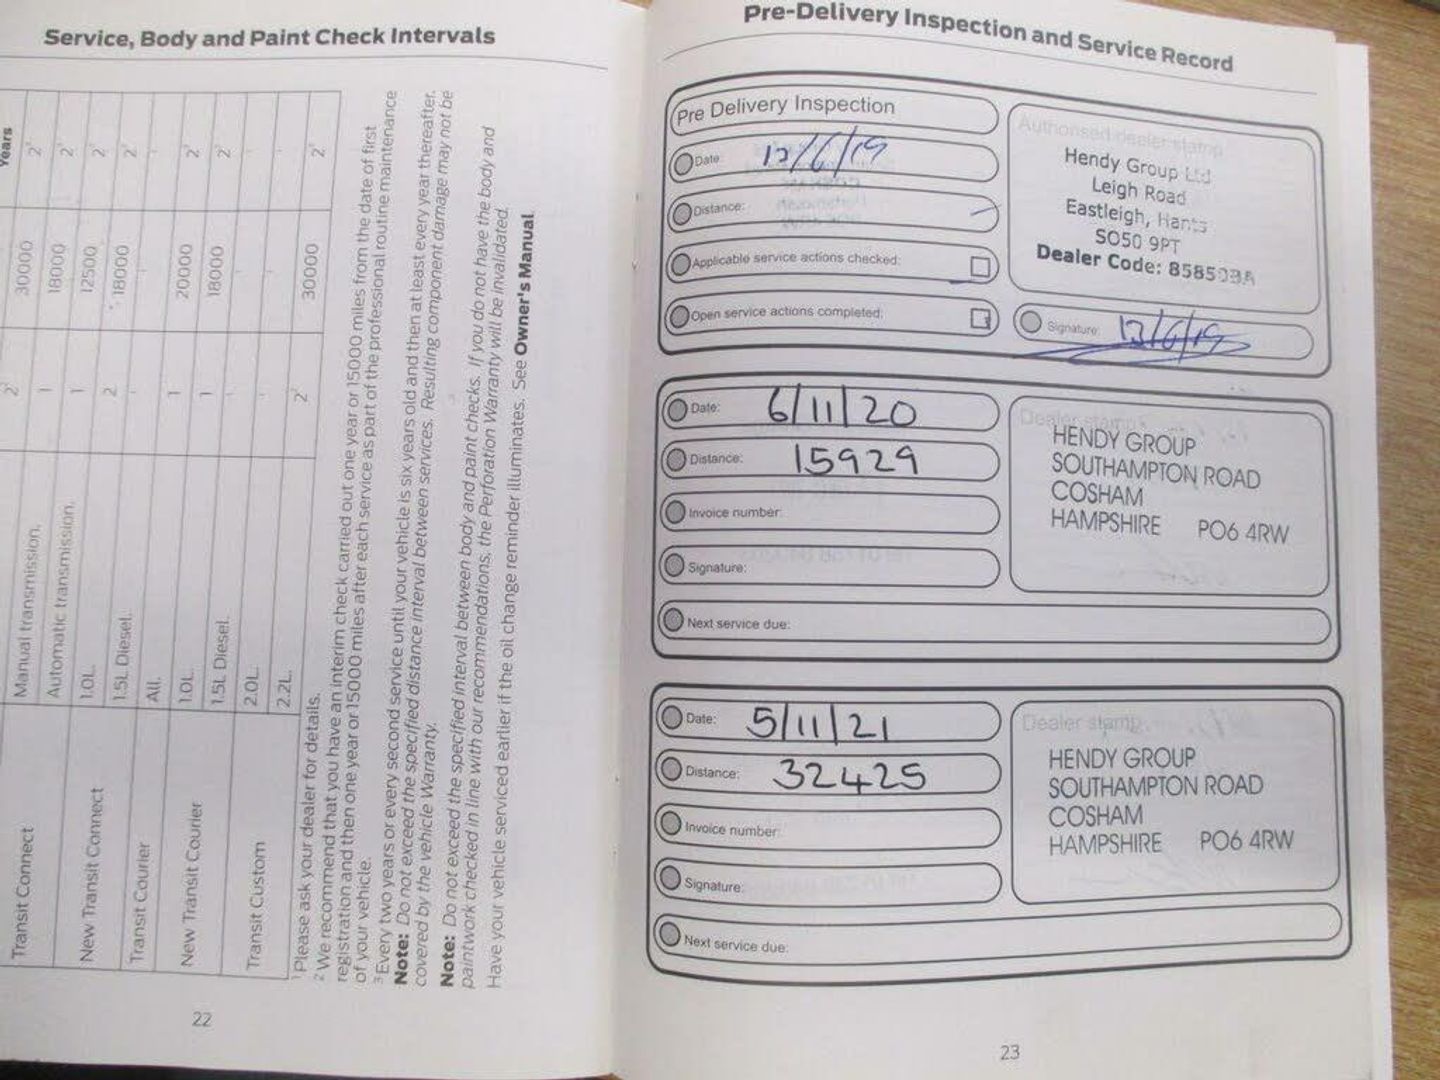 Service, Body and Paint Check Intervals
Years
Transit Connect
Manual transmission.
2
30000
2
Automatic transmission.
1
18000
2
New Transit Connect
1.0L.
1
12500
2
1.5L Diesel.
2
18000
2
Transit Courier
All.
New Transit Courier
1.0L.
1
20000
2
1.5L Diesel.
1
18000
2
Transit Custom
2.0L.
2.2L.
2
30000
2
1 Please ask your dealer for details.
2 We recommend that you have an interim check carried out one year or 15000 miles from the date of first
registration and then one year or 15000 miles after each service as part of the professional routine maintenance
of your vehicle.
3 Every two years or every second service until your vehicle is six years old and then at least every year thereafter.
Note: Do not exceed the specified distance interval between services. Resulting component damage may not be
covered by the vehicle Warranty.
Note: Do not exceed the specified interval between body and paint checks. If you do not have the body and
paintwork checked in line with our recommendations, the Perforation Warranty will be invalidated.
Have your vehicle serviced earlier if the oil change reminder illuminates. See Owner's Manual.
22
Pre-Delivery Inspection and Service Record
Pre Delivery Inspection
Date:
Distance:
Applicable service actions checked:
Open service actions completed:
Authorised dealer stamp
Hendy Group Ltd
Leigh Road
Eastleigh, Hants
SO50 9PT
Dealer Code:
Signature: 13/6/19
Date: 6/11/20
Distance: 15929
Invoice number:
Signature:
Next service due:
Dealer stamp
HENDY GROUP
SOUTHAMPTON ROAD
COSHAM
HAMPSHIRE PO6 4RW
Date: 5/11/21
Distance: 32425
Invoice number:
Signature:
Next service due:
Dealer stamp
HENDY GROUP
SOUTHAMPTON ROAD
COSHAM
HAMPSHIRE PO6 4RW
23